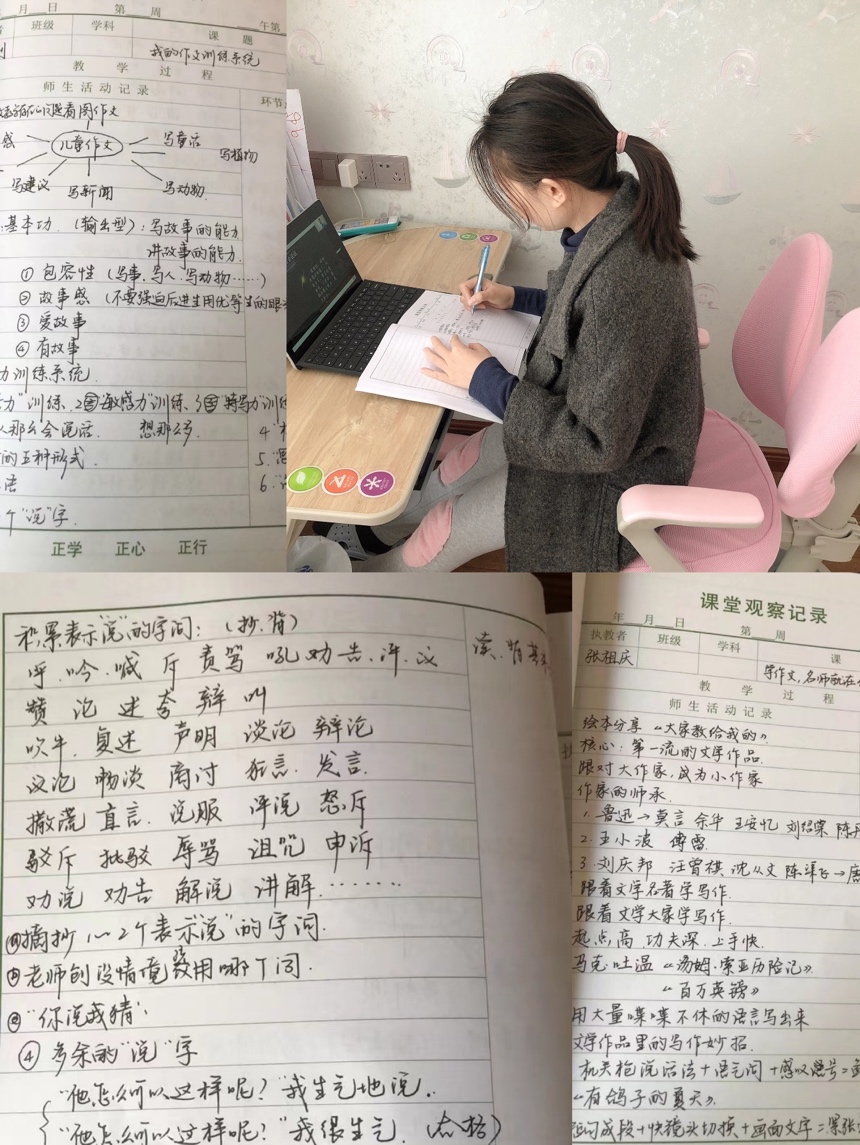 月 日 第 周 午第
班级 学科 课 题
我的作文训练系统
教 学 过 程
师 生 活 动 记 录 环节
看图作文
感 儿童作文 写童话
写植物
写建议 写新闻 写动物
基本功.(输出型):写故事的能力
讲故事的能力.
① 包容性(写事.写人.写动物……)
② 故事感(不要强迫后进生用优等生的眼
③ 爱故事
④ 有故事
力训练系统.
力”训练、2 敏感力”训练、3 特写力”训练
人那么会说话. 想那么多. 4
的五种形式. 5.
语 6.
个“说”字.
正学 正心 正行
积累表示“说”的字词:(抄.背)
呼.吟.喊 斥 责骂 吼 劝 告.评.议
赞 论 述 夸 辩 叫
吹牛.复述 声明 谈论 辩论
议论 畅谈 商讨 狂言.发言.
撒谎 直言.说服 评说 怒斥
驳斥 批驳 辱骂 诅咒 申诉
劝说 劝告 解说 讲解.……
读.背
摘抄1~2个表示“说”的字词.
老师创设情境 用哪个词.
“你说我猜”:
④ 多余的“说”字
“他怎么可以这样呢?”我生气地说.
“他怎么可以这样呢?”我很生气.(合格)
课堂观察记录
年 月 日 第 周
执教者 班级 学科 课
张祖庆 学作文,名师就在
教 学 过 程
师 生 活 动 记 录
绘本分享《大家教给我的》
核心:第一流的文学作品.
跟对大作家,成为小作家
作家的师承.
1.鲁迅→莫言 余华 王安忆 刘绍棠 陈丹
2.王小波 傅雷.
3.刘庆邦 汪曾祺.沈从文 陈 飞→
跟着文学名著学写作.
跟着文学大家学写作.
起点高 功夫深.上手快.
马克·吐温《汤姆·索亚历险记》
《百万英镑》
用大量喋喋不休的语言写出来
文学作品里的写作妙招.
机关枪说话法+语气词+感叹号=
《有鸽子的夏天》.
短词成段+快镜头切换+画面文字=紧张